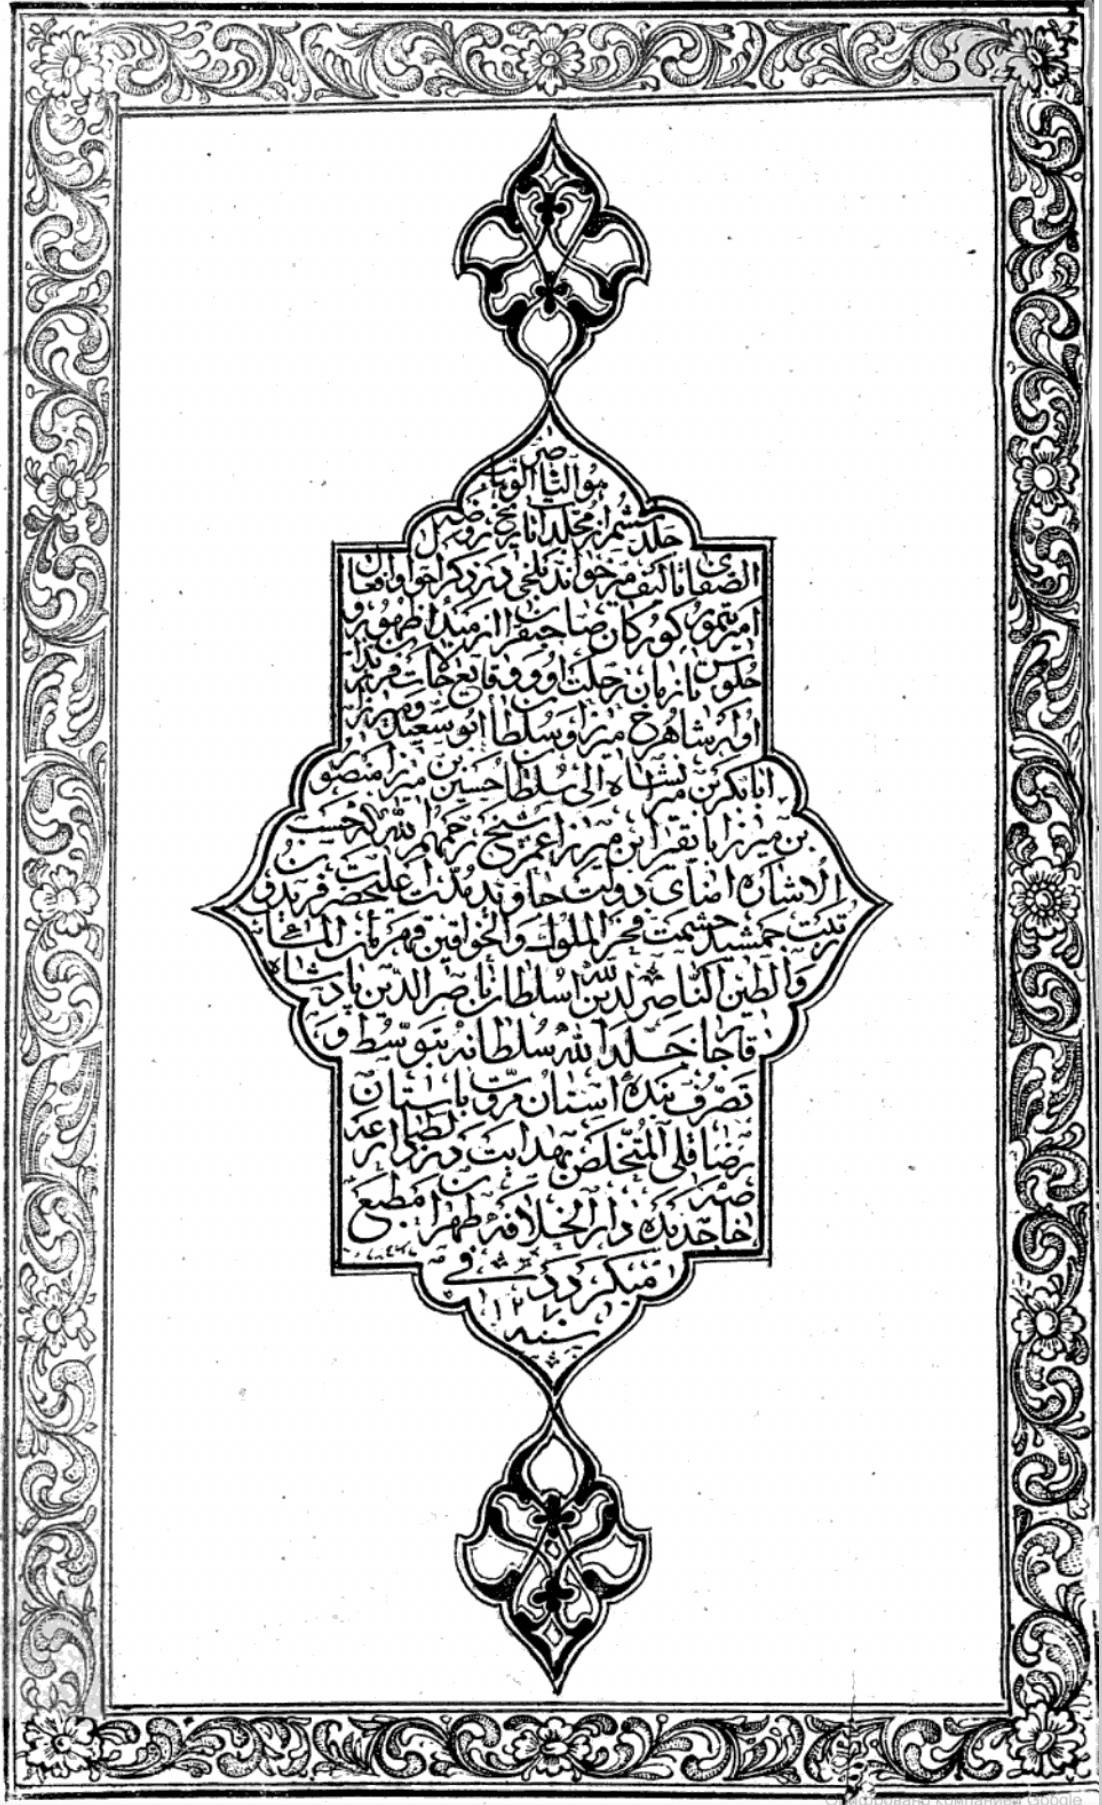 هو الناصر
جلد ششم از مجلدات تاریخ روضة
الصفای تالیف میرخواند بلخی در ذکر احوال و افعال
امیر تیمور کورکان صاحبقران از مبدأ ظهور و
جلوس تا زمان رحلت او و وقایع حالات فرزندان
او امیر شاهرخ میرزا و سلطان ابوسعید و میرزا
ابابکر بن میرانشاه الی سلطان حسین بن میرزا منصور
بن میرزا بایقرا ابن میرزا عمر شیخ رحمهم الله که حسب
الاشاره امنای دولت جاوید مدت اعلیحضرت فریدون
رتبت جمشید حشمت فخر الملوک والخواقین قهرمان الماء
والطین الناصر لدین الله السلطان ناصر الدین پادشاه
قاجار خلد الله سلطانه بتوسط و
تصرف بنده آستان مروت باستان
رضاقلی المتخلص بهدایت در
دار الخلافه طهران مطبع
میکردد فی
سنه
Оцифровано компанией Google